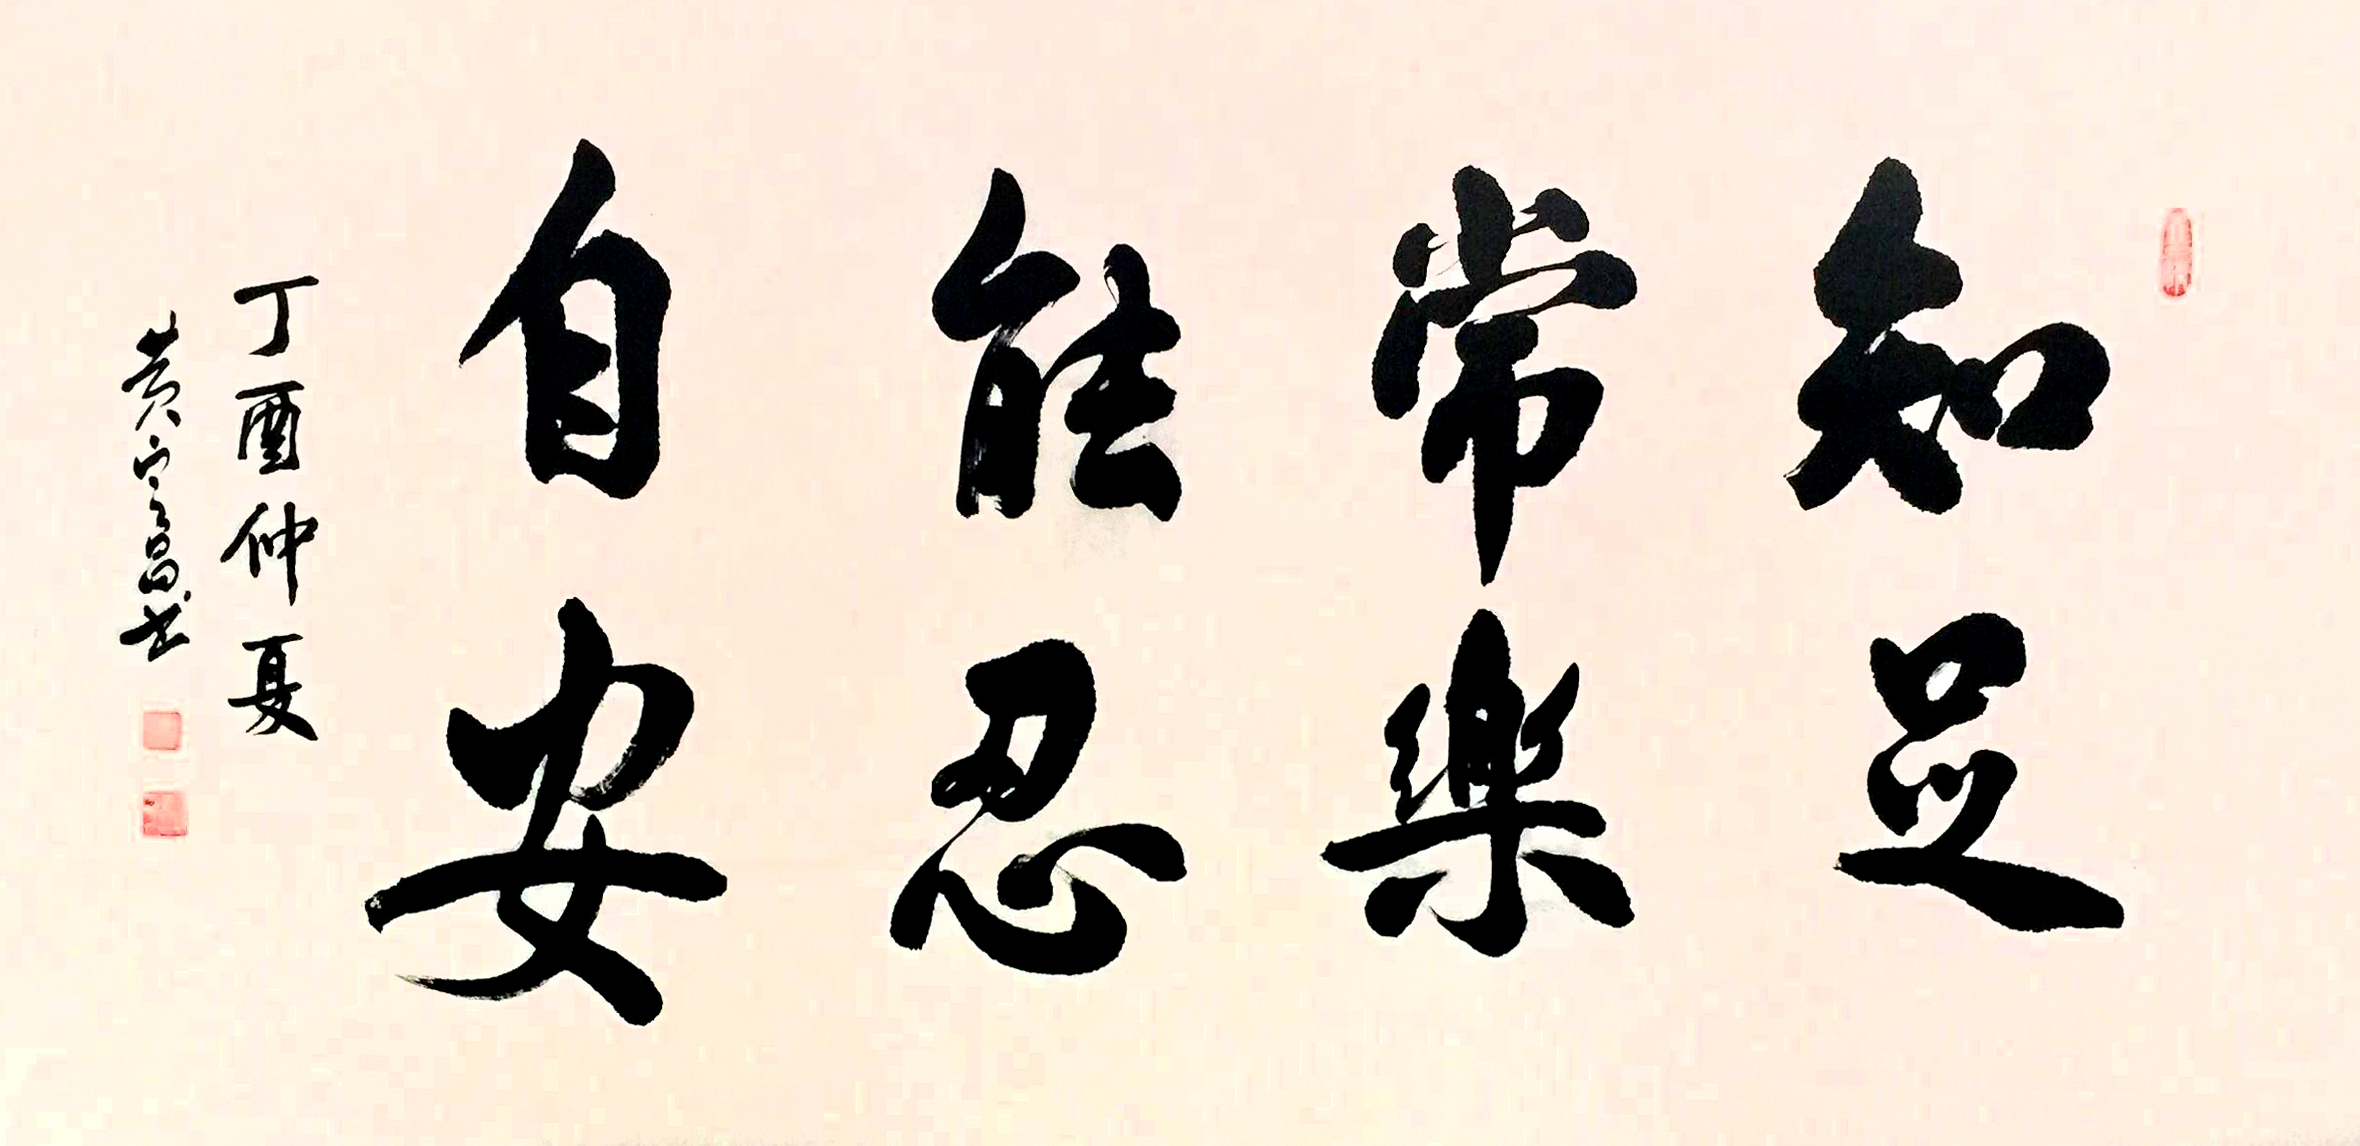 知足
常樂
能忍
自安
丁酉仲夏
黄宗昌书